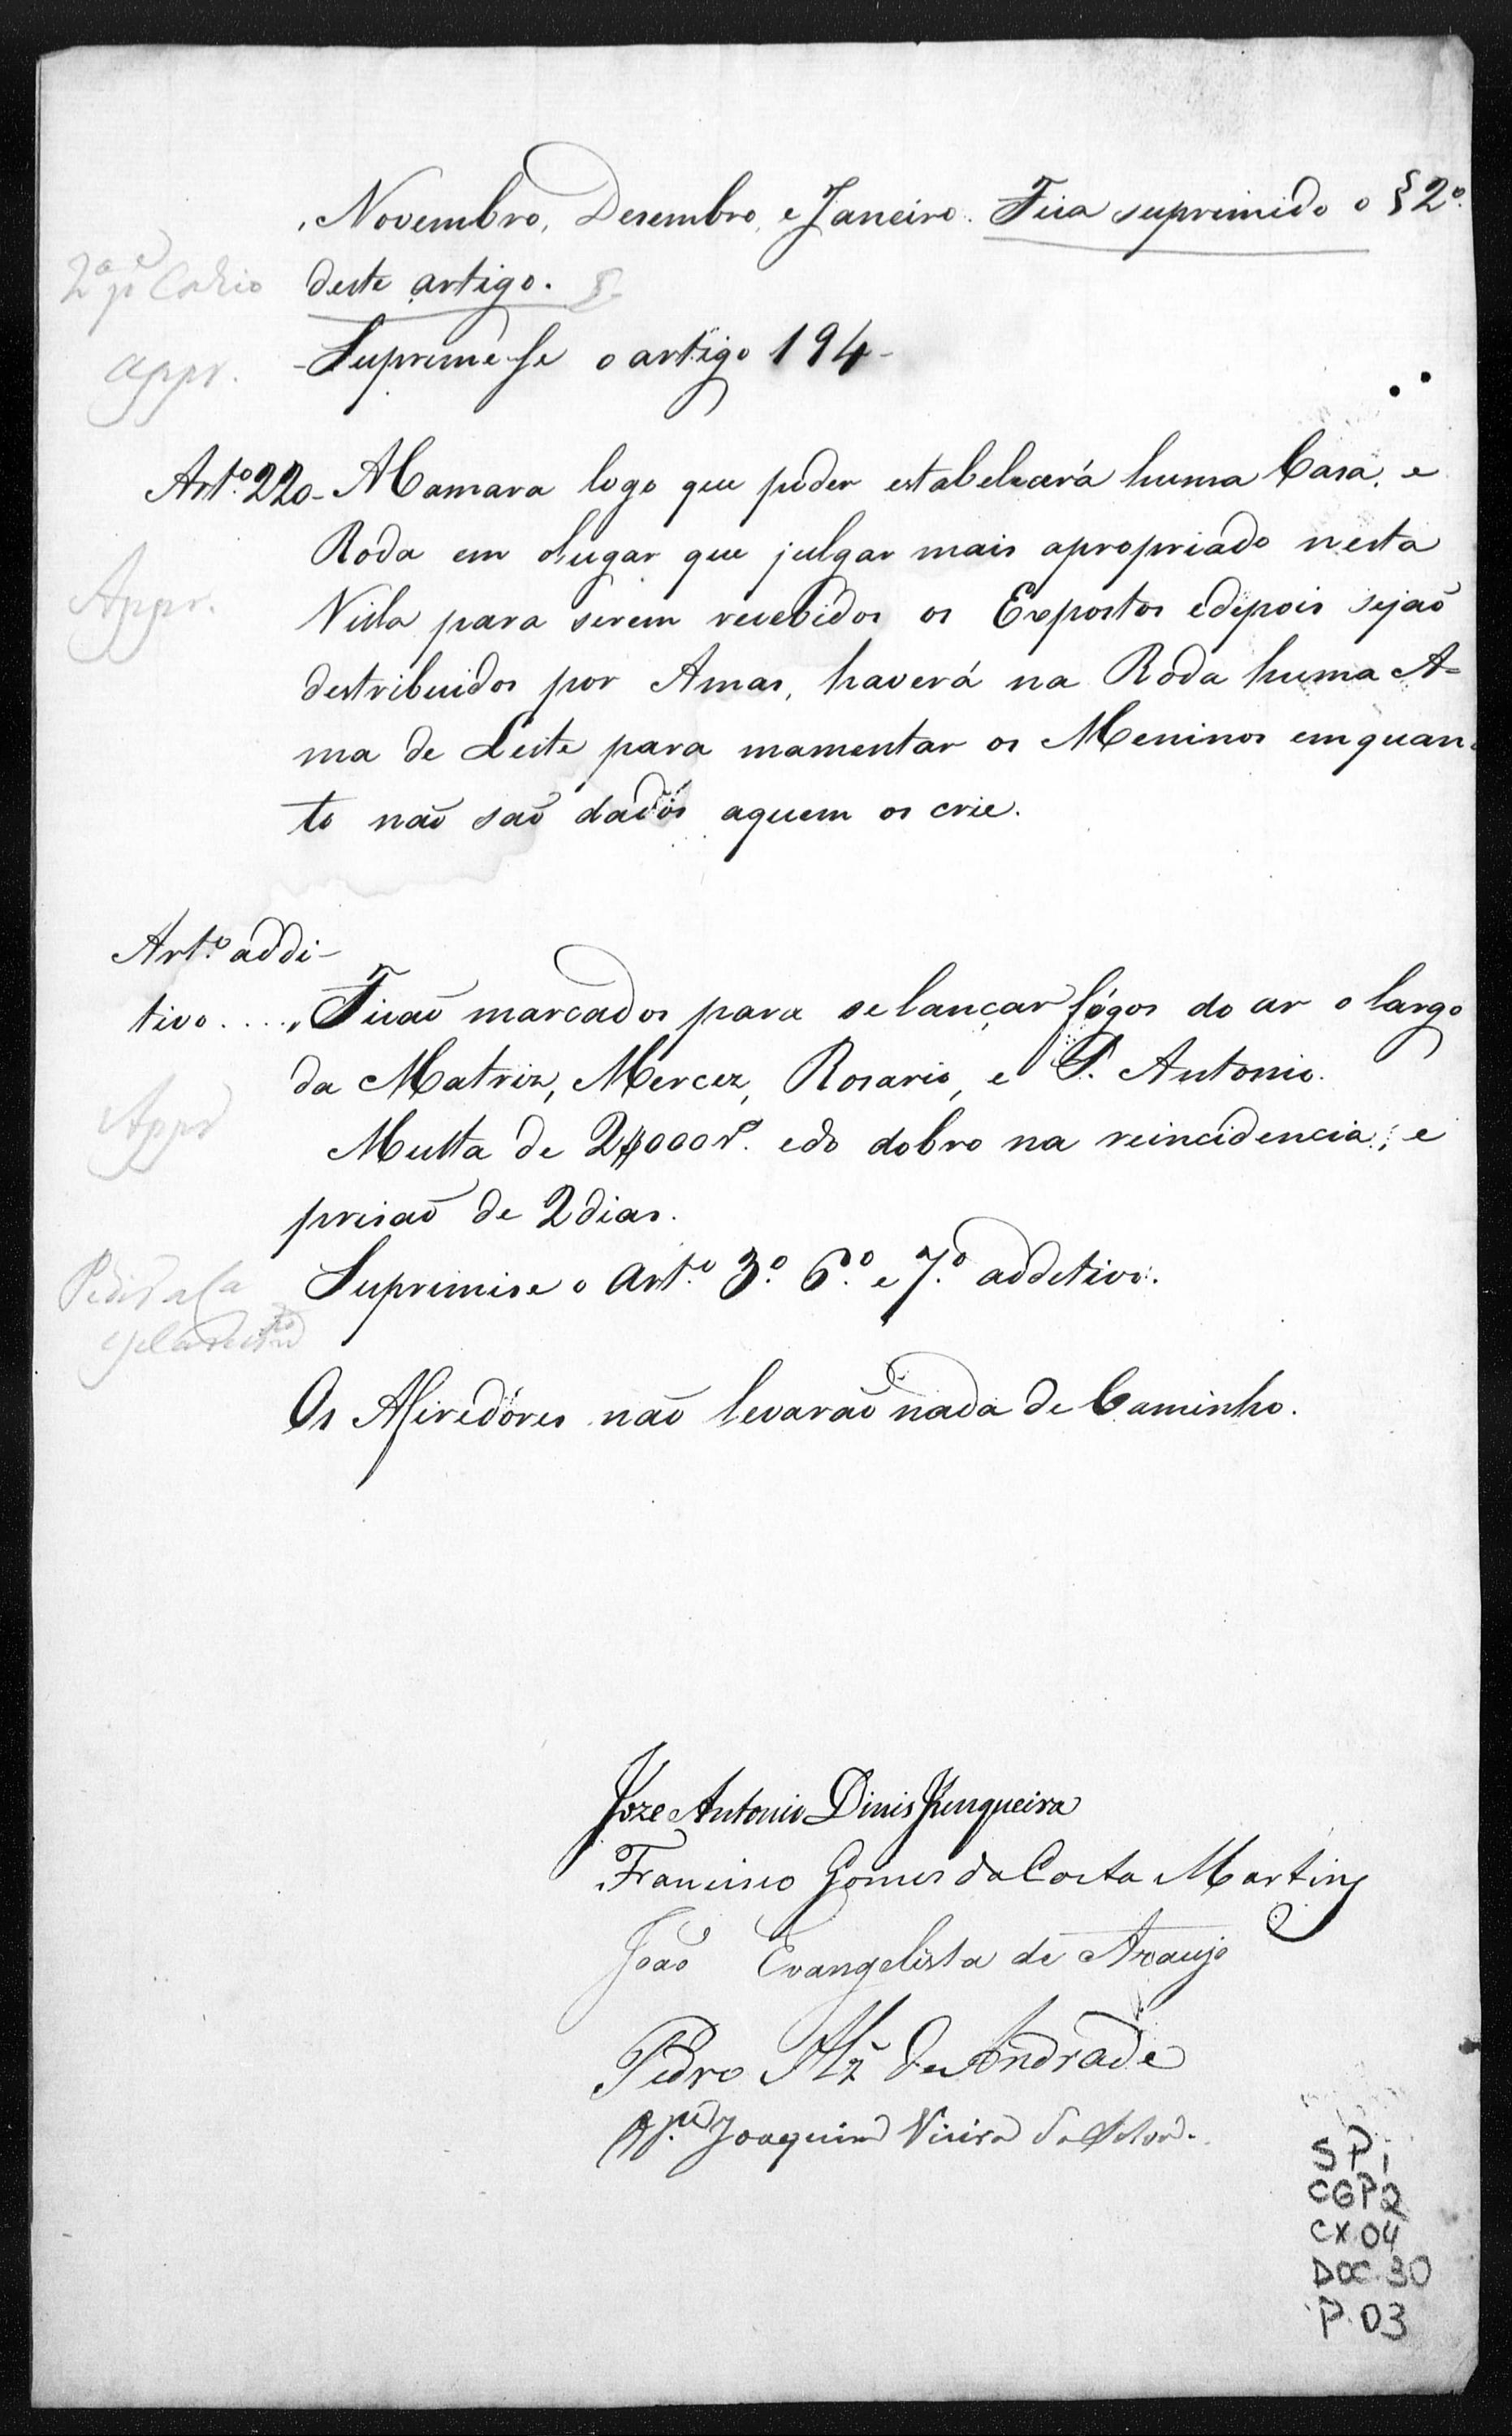 Novembro, Desembro, e Janeiro. Fica suprimido o § 2º.
deste artigo.
appr.
Supreme-se o artigo 194-
Artº. 220- A Camara logo que pudér estabelecerá huma Casa, e
Roda em o lugar que julgar mais apropriado nesta
Appr.
Villa para serem recebidos os Expostos edepois sejaõ
destribuidos por Amas, haverá na Roda huma A=
ma de Leite para mamentar os Meninos emquan-
to naõ saõ dados aquem os crie.
Artº. addi-
tivo.... Ficaõ marcados para selançar fógos do ar o largo
da Matriz, Mercez, Rosario, e S. Antonio.
Appr
Multa de 2$000 rs. edo dobro na reincidencia; e
prisaõ de 2 dias.
Suprimise o Artº. 3º. 6º. e 7º. addetivo.
Os Aferidóres naõ levaraõ nada de Caminho.
Joze Antonio Dinis Junqueira
Francisco Gomes da Costa Martins
Joaõ Evangelista de Araujo
Pedro Alz de Andrade
Joaquim Vieira da Silva.
SP1
CGP2
CX.04
DOC.30
P.03